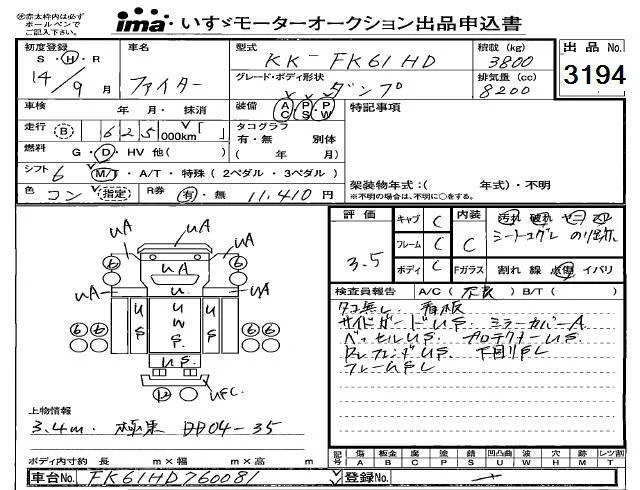 ※赤太枠内は必ず
ボールペンで
ご記入下さい。
ima・いすゞモーターオークション出品申込書
初度登録
S・H・R
14/9月
車名
ファイター
型式
KK-FK61HD
グレード・ボディ形状
ダンプ
積載(kg)
3800
排気量(cc)
8200
出品No.
3194
車検 年 月・抹消
装備 AC PS・PW
特記事項
走行 B 625,000km「 」
タコグラフ
有・無 別体
( 年 月)
燃料 G・D・HV 他( )
シフト 6 M/T・A/T・特殊(2ペダル・3ペダル)
架装物年式:( 年式)・不明
※不明の場合は、不明に○をする。
色 コン 指定
R券 有・無 11,410円
評価 3.5
キャブ C
フレーム C
ボディ C
内装 C
汚れ 破れ ヤニ
Fガラス 割れ 線 点傷 イバリ
検査員報告 A/C(不良)B/T( )
タコ無し 看板
サイドガードUS ミラーカバーA
ベッセルUS プロテクターUS
フレームSL
UA UA
UA UA
U U
US UWS US
US
UFC
⑥ ⑥
⑥ ⑥
⑫
上物情報
3.4m 極東 DD04-35
ボディ内寸約 長 m×幅 m×高 m
記号 傷 板金 腐 塗 錆 凹凸曲 波 穴 跡 レツ割
A B C P S U W H M T
車台No. FK61HD760081
登録No.